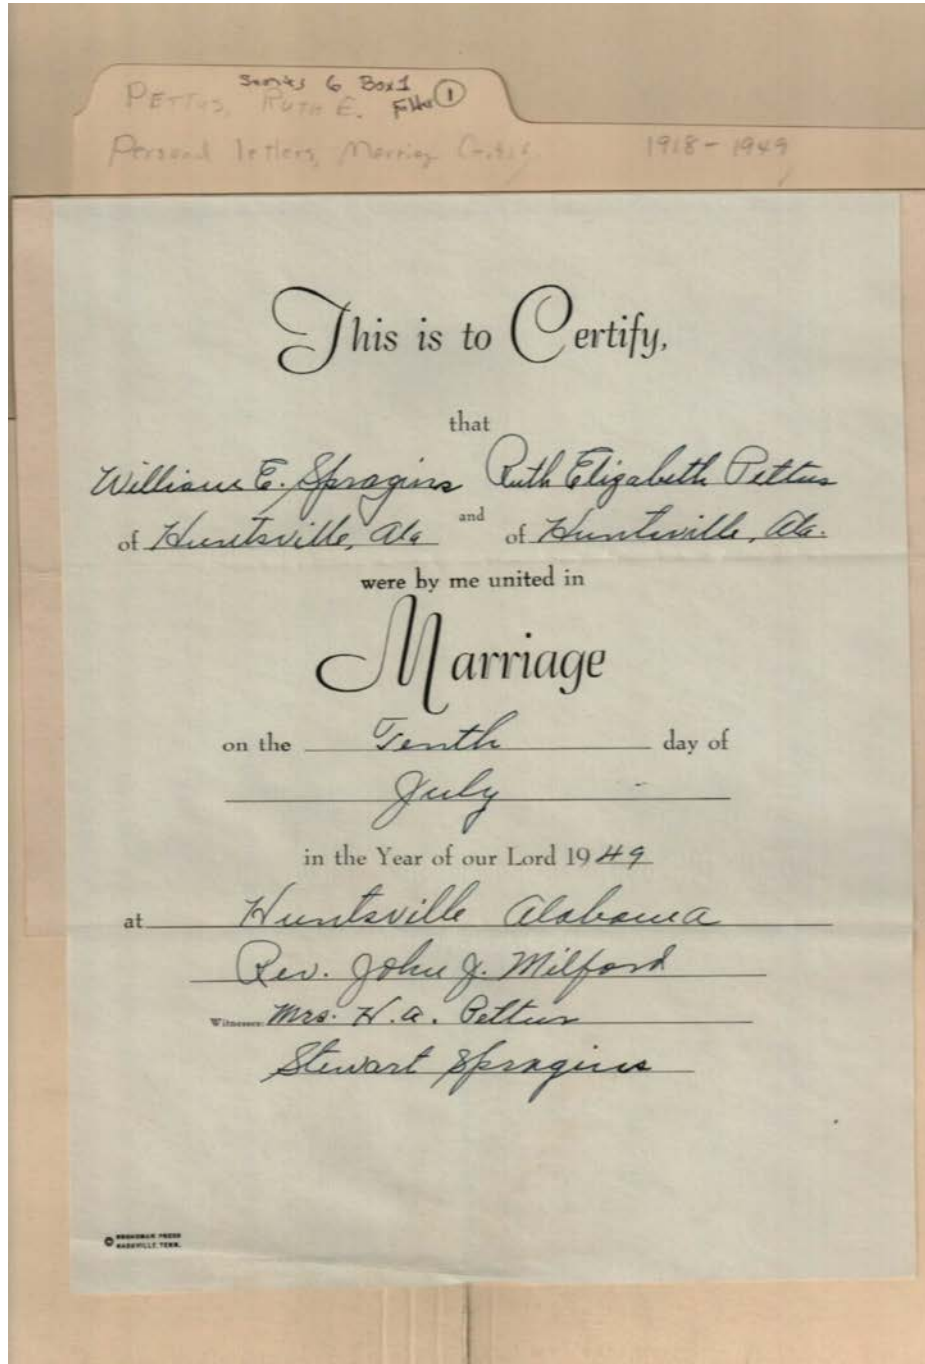 Series 6 Box 1
PETTUS, RUTH E. Folder 1
Personal letters, Marriage Certif. 1918-1949
This is to Certify,
that
William E. Spragins Ruth Elizabeth Pettus
and
of Huntsville, Ala of Huntsville, Ala.
were by me united in
Marriage
on the Tenth day of
July
in the Year of our Lord 1949
at Huntsville Alabama
Rev. John J. Milford
Witnesses: Mrs. H. A. Pettus
Stewart Spragins
© BROADMAN PRESS
NASHVILLE, TENN.